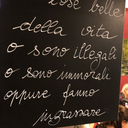 cose belle
della vita
o sono illegali
o sono immorali
oppure fanno
ingrassare